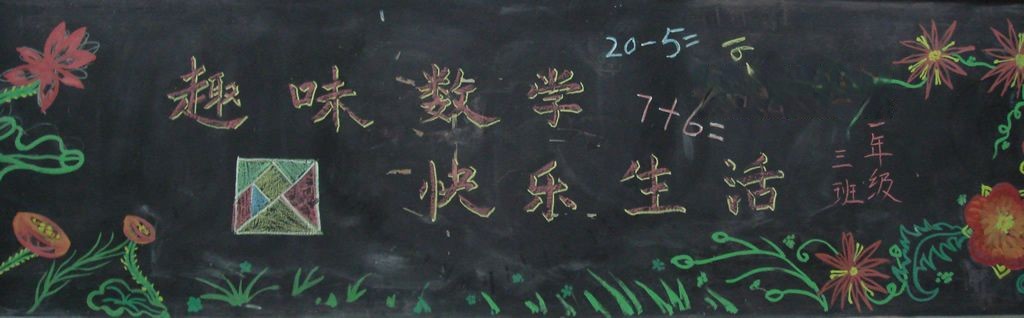 趣味数学
快乐生活
20-5=
7+6=
一年级
三班